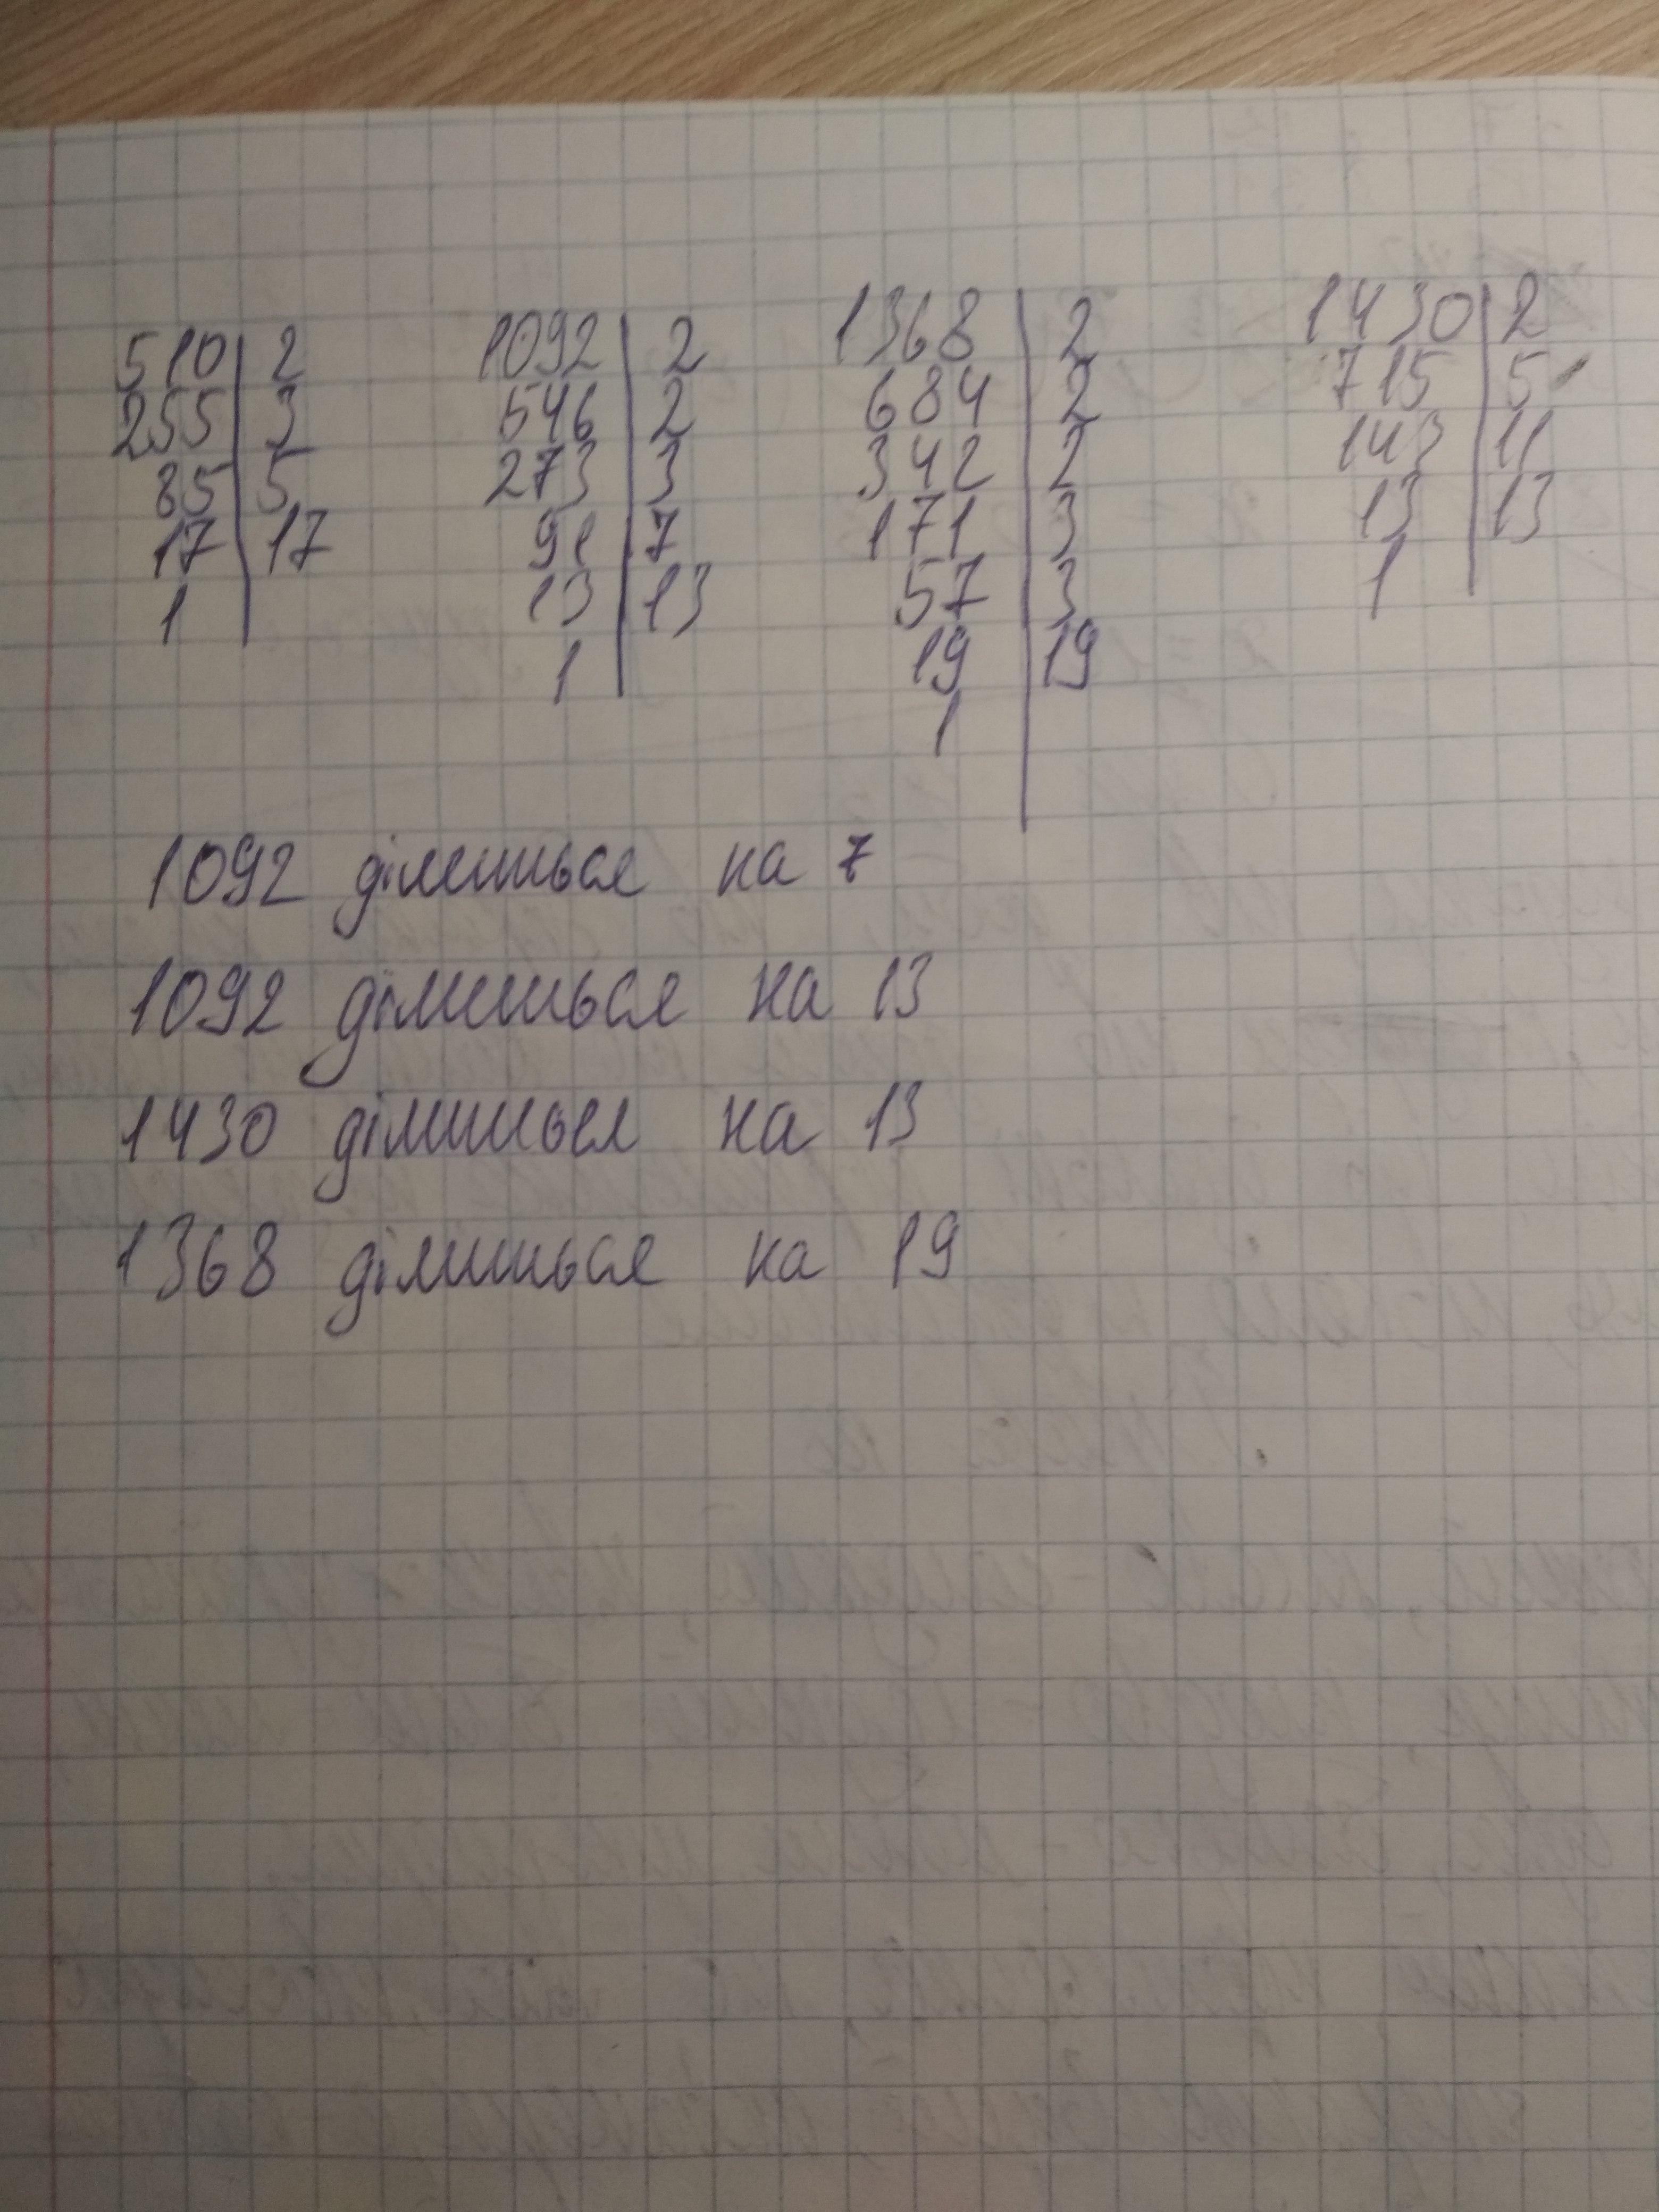 510 | 2
255 | 3
85 | 5
17 | 17
1
1092 | 2
546 | 2
273 | 3
91 | 7
13 | 13
1
1368 | 2
684 | 2
342 | 2
171 | 3
57 | 3
19 | 19
1
1430 | 2
715 | 5
143 | 11
13 | 13
1
1092 ділиться на 7
1092 ділиться на 13
1430 ділиться на 13
1368 ділиться на 19